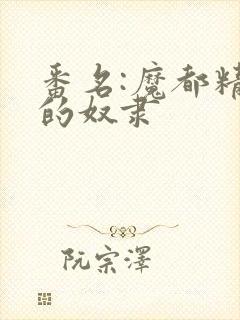 番名:魔都精
的奴隶
阮宗澤